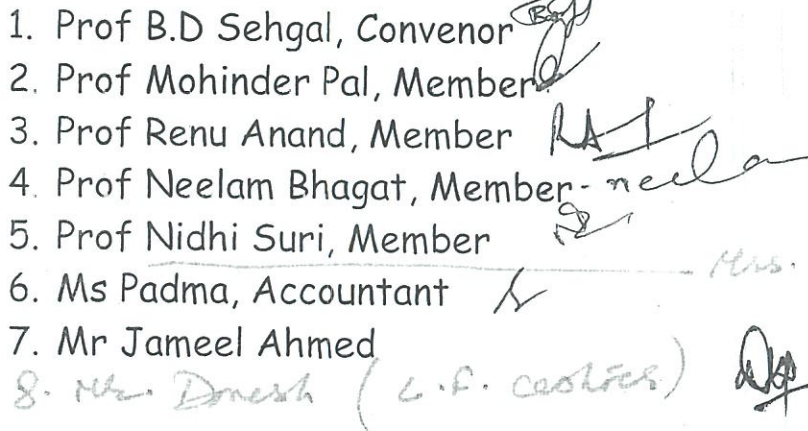 1. Prof B.D Sehgal, Convenor
2. Prof Mohinder Pal, Member
3. Prof Renu Anand, Member
4. Prof Neelam Bhagat, Member - neela
5. Prof Nidhi Suri, Member
Mrs.
6. Ms Padma, Accountant
7. Mr Jameel Ahmed
8. Mr. Dinesh (L.F.